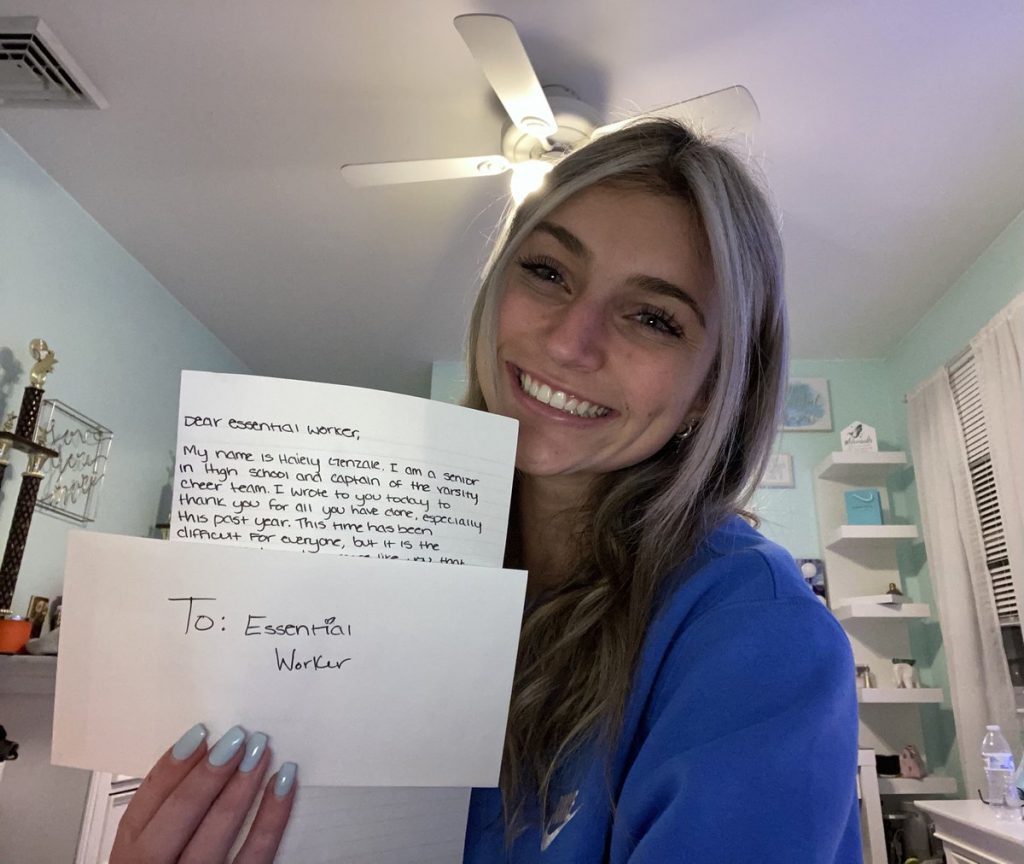 Dear essential worker,
My name is Haiely Genzale. I am a senior
in High school and captain of the varsity
cheer team. I wrote to you today to
thank you for all you have done, especially
this past year. This time has been
difficult for everyone, but it is the
like you that
To: Essential
Worker